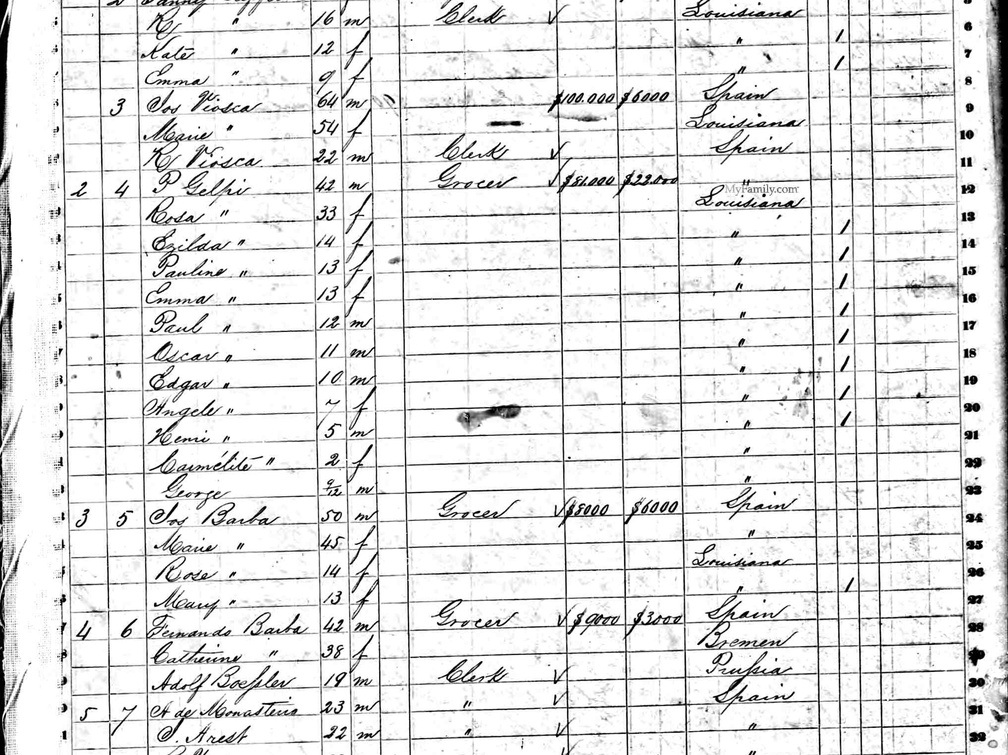 16 m Clerk ✓ Louisiana 6
Kate " 12 f " 1 7
Emma " 9 f " 1 8
3 Jos Viosca 64 m $100.000 $6000 Spain 9
Marie " 54 f Louisiana 10
R Viosca 22 m Clerk ✓ Spain 11
2 4 P Gelpi 42 m Grocer ✓ $81.000 $22.000 " 12
MyFamily.com
Rosa " 33 f Louisiana 13
Ezilda " 14 f " 1 14
Pauline " 13 f " 1 15
Emma " 13 f " 1 16
Paul " 12 m " 1 17
Oscar " 11 m " 1 18
Edgar " 10 m " 1 19
Angele " 7 f " 1 20
Henri " 5 m " 1 21
Carmélite " 2 f " 22
George 9/12 m " 23
3 5 Jos Barba 50 m Grocer ✓ $8000 $6000 Spain 24
Marie " 45 f " 25
Rose " 14 f Louisiana 26
Mary " 13 f " 1 27
4 6 Fernando Barba 42 m Grocer ✓ $9000 $3000 Spain 28
Catherine " 38 f Bremen
Adolf Boessler 19 m Clerk ✓ Prussia 30
5 7 A de Monasterio 23 m " ✓ Spain 31
J. Arest 22 m " ✓ " 32